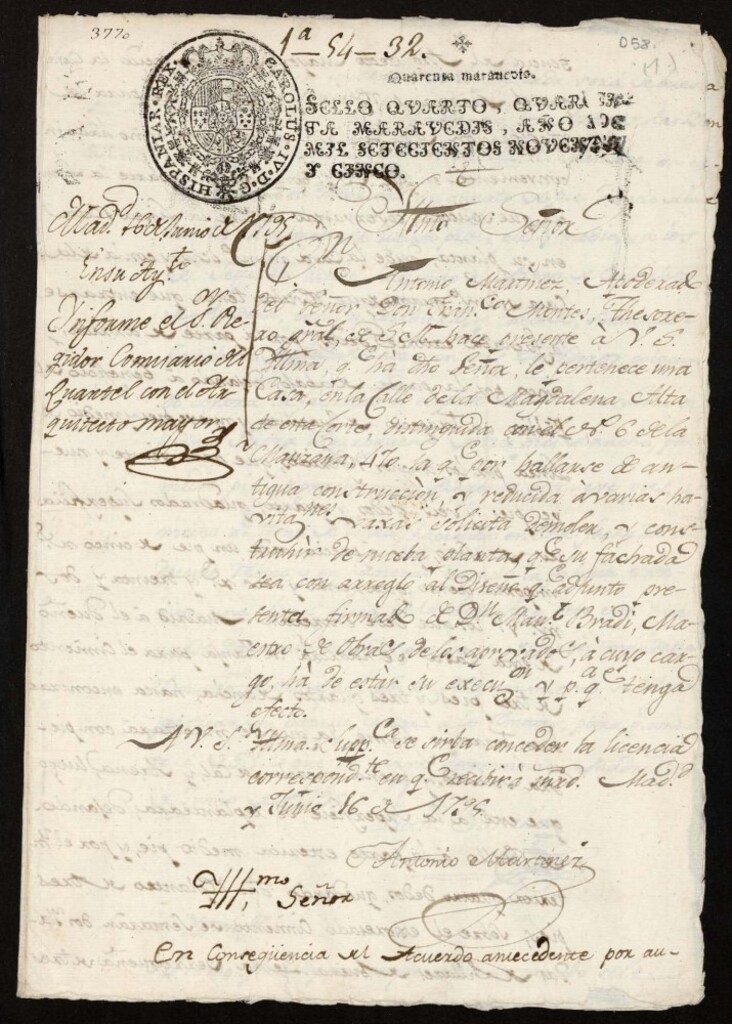 3770
1ª-54-32.
058.
(1)
CAROLUS·IV·D·G·HISPANIAR·REX·
Quarenta maravedis.
SELLO QVARTO, QVAREN-
TA MARAVEDIS, AÑO DE
MIL SETECIENTOS NOVENTA
Y CINCO.
Mad.d 16 de Junio de 1795
En su Ay.to
Informe el S.r Re-
gidor Comisario del
Quartel con el Ar-
quitecto mayor
Yllmo Señor
Dn Antonio Martinez, Apoderado
del Señor Don Fran.co Montes, Thesore-
ro gral, de S.M. hace presente à V. S.
Yllma, q.e hà dho Señor, le pertenece una
Casa, en la Calle de la Magdalena Alta
de esta Corte, distinguida con el N.º 6 de la
Manzana, 470 la q.e por hallarse de an-
tigua construcción, y reducida à varias ha-
vitanes vaxas solicita demoler, y cons-
truhir de nueba planta, q.e su fachada
sea con arreglo al Diseño q.e adjunto pre-
senta, firmado de Dn Man.l Bradi, Ma-
estro de Obras de los aprovados, à cuyo car-
go, hà de estàr su execuon y p.a q.e tenga
efecto.
A V. S. Yllma. supp.ca se sirba conceder la licencia
correspond.te en q.e recibirà mrd. Mad.d
y Junio 16 de 1795.
Antonio Martinez
Yllmo Señor
En Conseqüencia del Acuerdo antecedente por au-